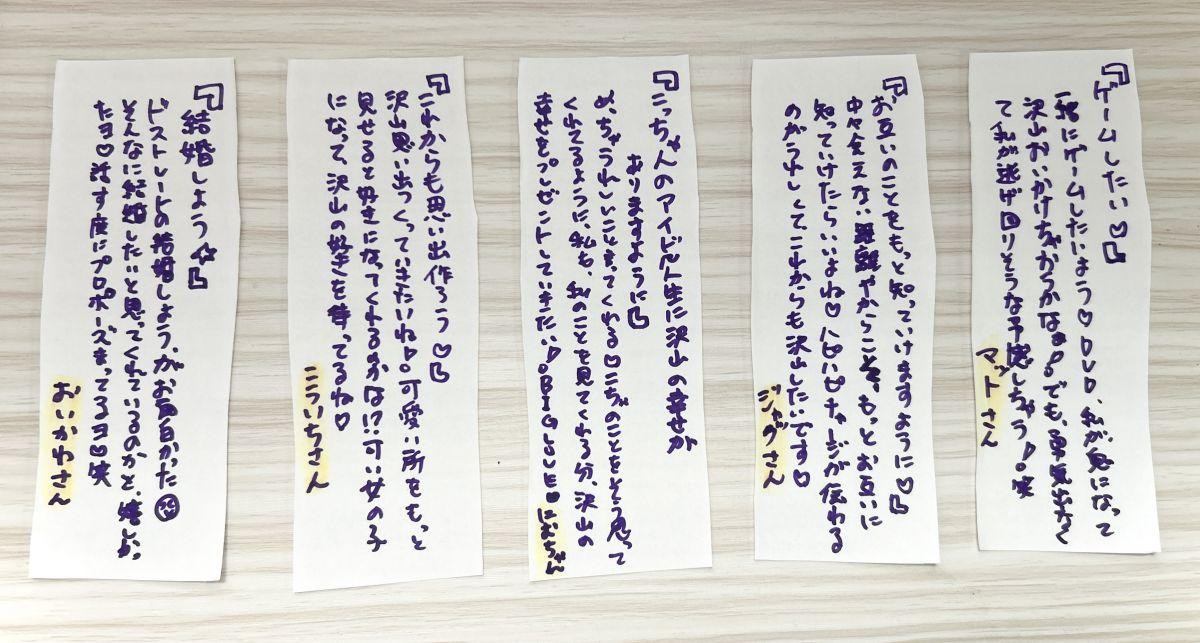 『ゲームしたい♡』
一緒にゲームしたいよう♡DVD、私が鬼になって
沢山おいかけちゃからかなぁ!。でも、勇気出なく
て私が逃げ回りそうな予感しちゃう!。笑
マットさん
『お互いのことをもっと知っていけますように♡』
中々会えない距離やからこそ、もっとお互いに
知っていけたらいいよね♡ハピハピチャージが伝わる
のがうれしくてこれからも沢山したいです♡
ジャグさん
『こっちゃんのアイドル人生に沢山の幸せが
ありますように』
めっちゃうれしいことをゆってくれる♡こぢのことをそう思って
くれてるように、私も、私のことを見てくれる分、沢山の
幸せをプレゼントしていきたい!。BIG LOVE♡
におちゃん
『これからも思い出作ろう♡』
沢山思い出つくっていきたいね!。可愛い所をもっと
見せると好きになってくれるのかな!?可愛い女の子
になって、沢山の好きを待ってるね♡
こういちさん
『結婚しよう☆』
ドストレートの結婚しよう、がお面白かった
そんなに結婚したいと思ってくれているのかと、嬉しかっ
たヨ♡話す度にプロポーズまってるヨ♡笑
おいかわさん